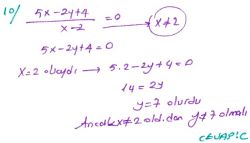 10/ (5x-2y+4)/(x-2) = 0 → x≠2
5x-2y+4=0
x=2 olsaydı → 5.2-2y+4=0
14=2y
y=7 olurdu
Ancak x≠2 old.dan y≠7 olmalı
CEVAP: C